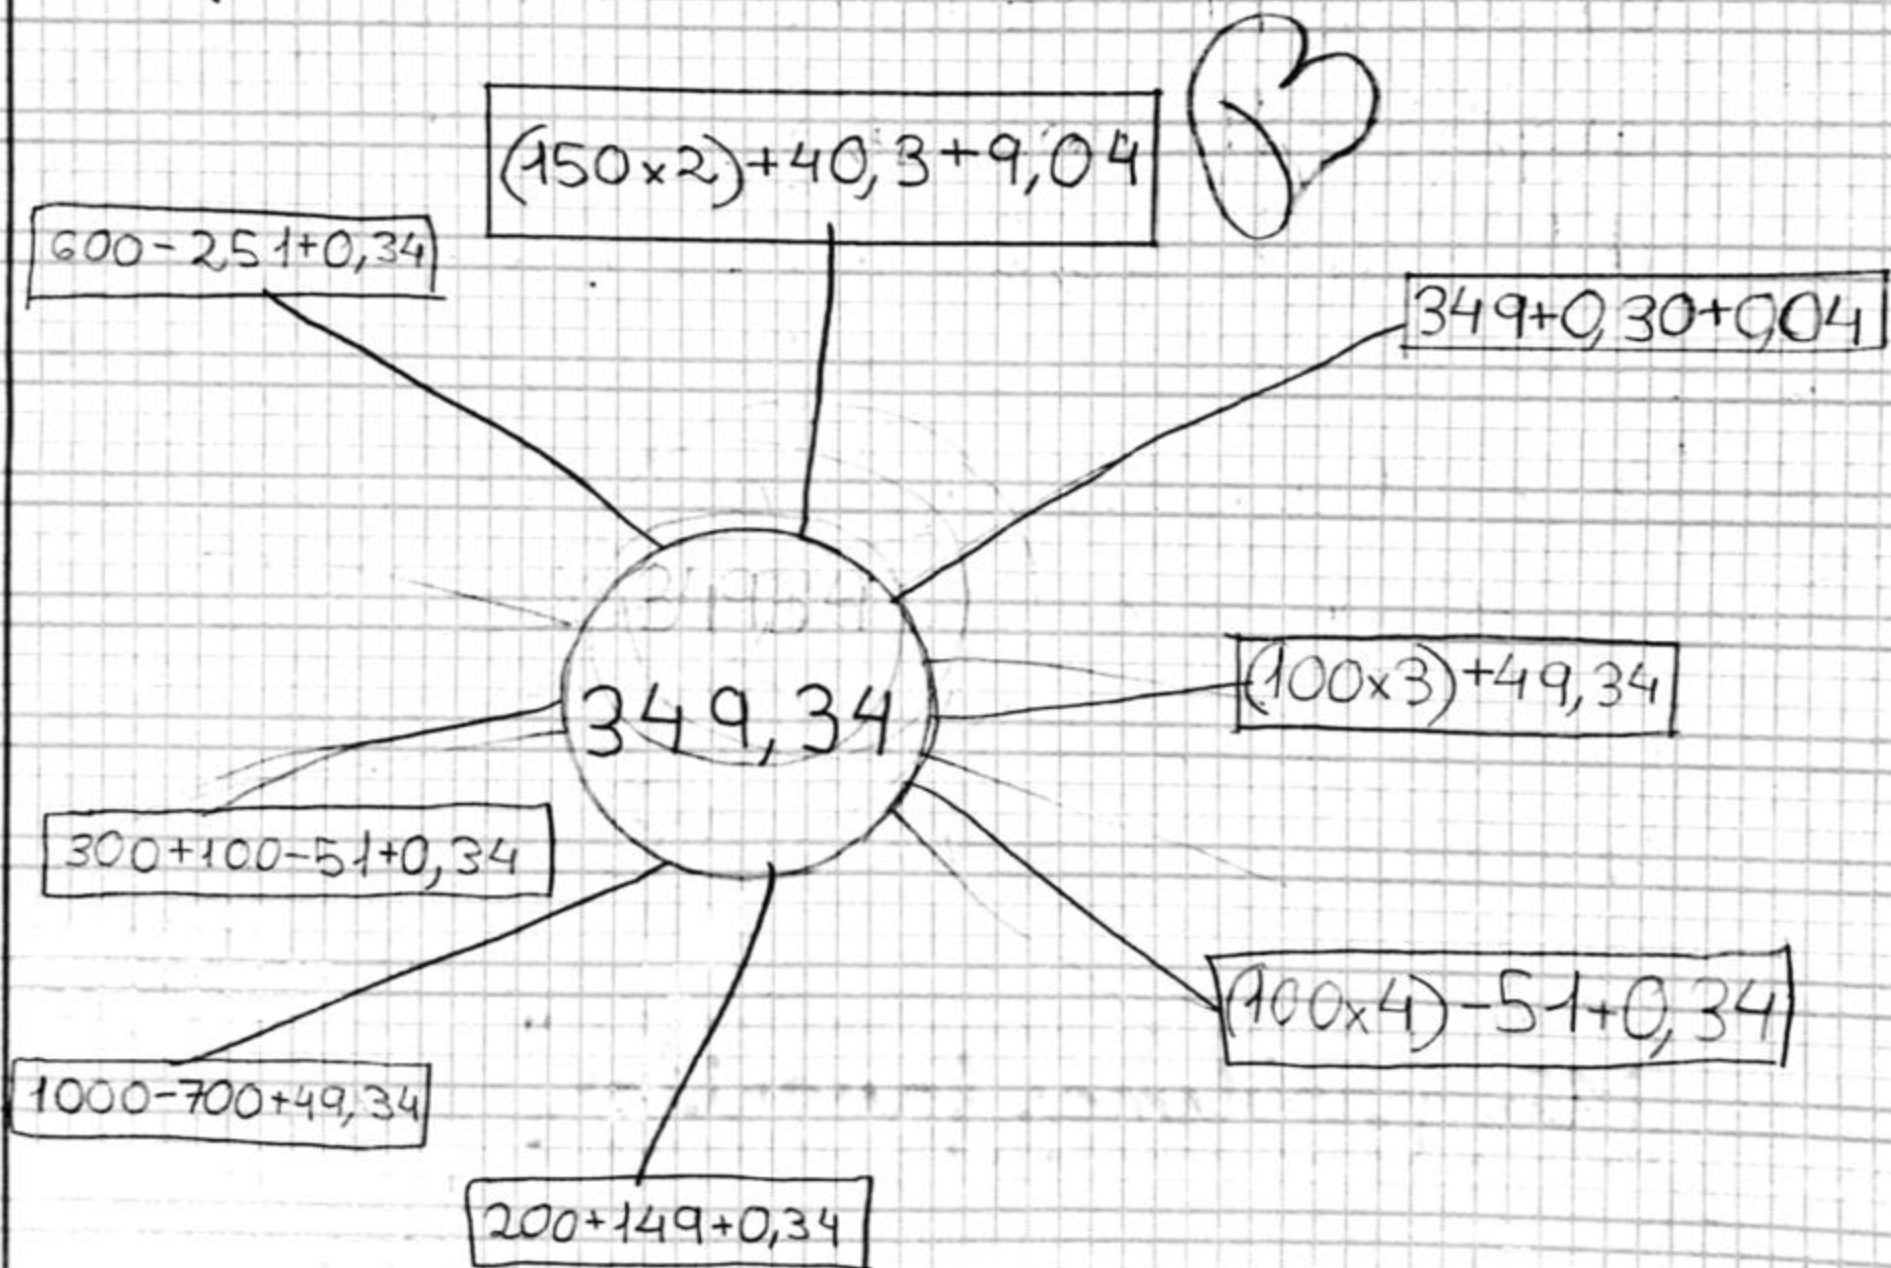 (150x2)+40,3+9,04
600-251+0,34
349+0,30+0,04
349,34
(100x3)+49,34
300+100-51+0,34
(100x4)-51+0,34
1000-700+49,34
200+149+0,34